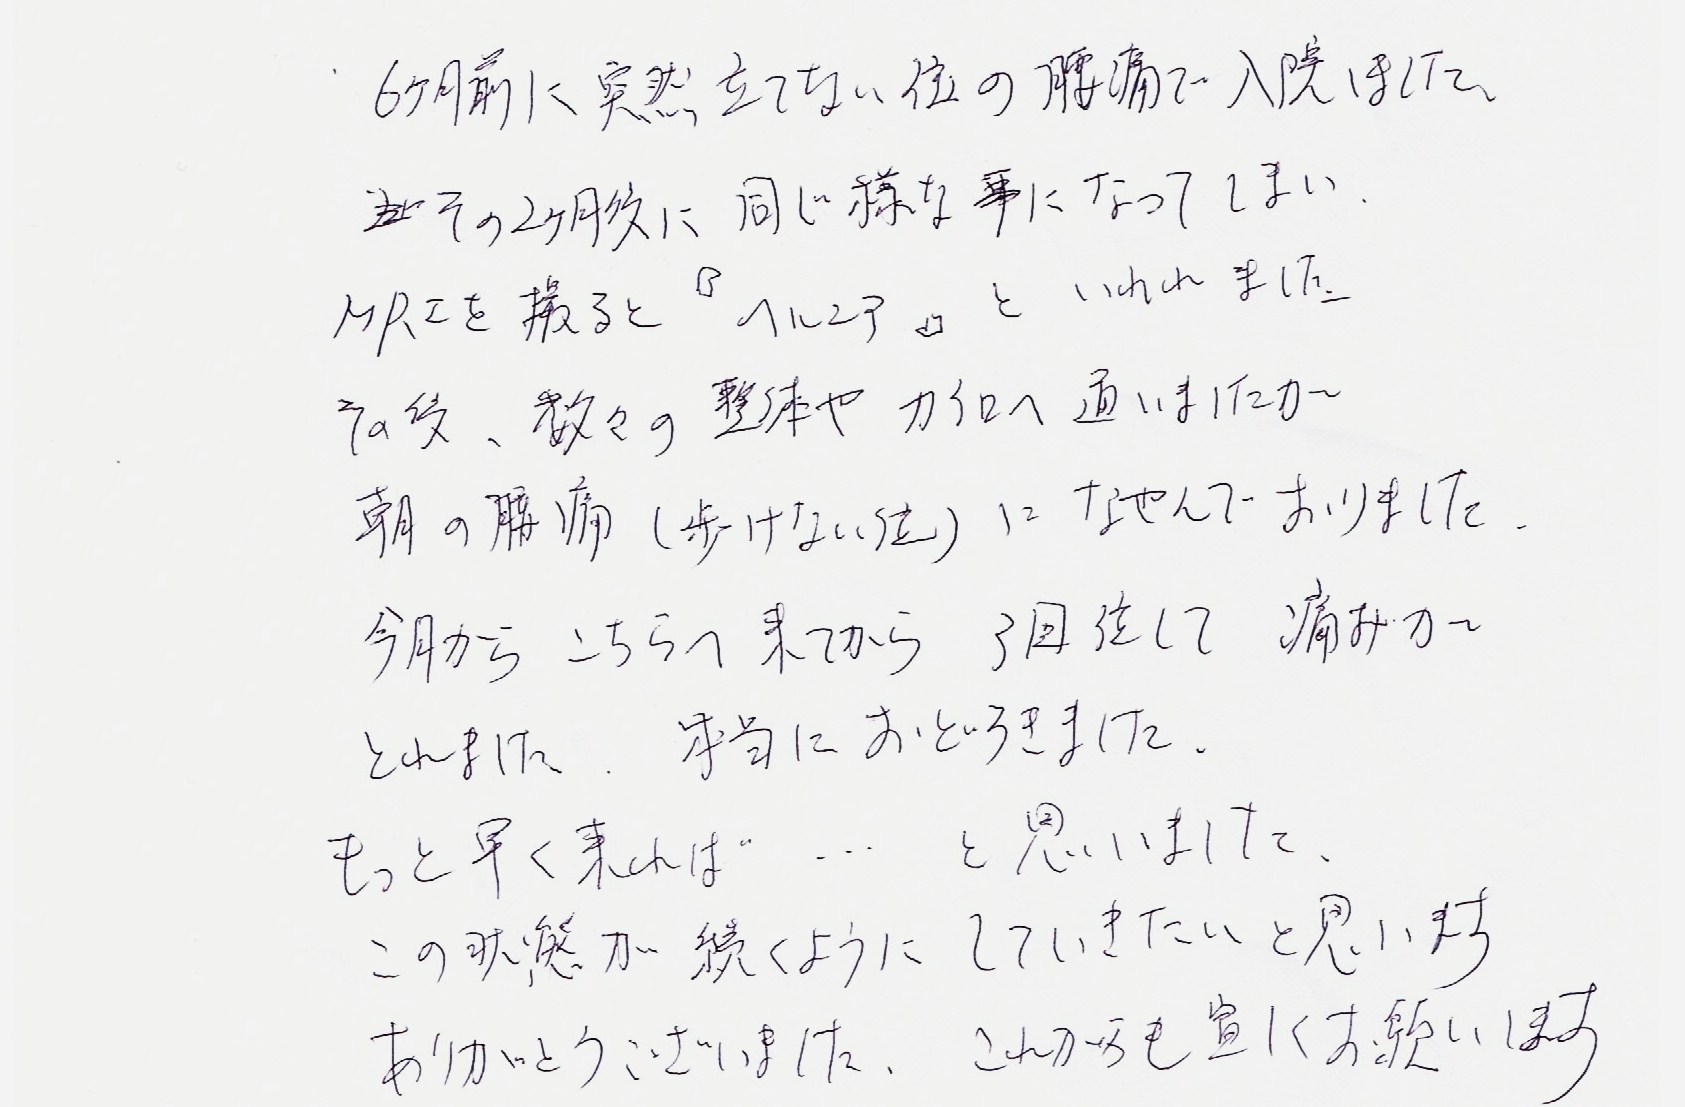 6ケ月前に突然立てない位の腰痛で入院しました、
その2ケ月後に同じ様な事になってしまい.
MRIを撮ると『ヘルニア』といわれました
その後、数々の整体やカイロへ通いましたが
朝の腰痛(歩けない位)になやんでおりました.
今月からこちらへ来てから3回位して痛みが
とれました. 本当におどろきました.
もっと早く来れば… と思いました、
この状態が続くようにしていきたいと思います
ありがとうございました、これからも宜しくお願いします